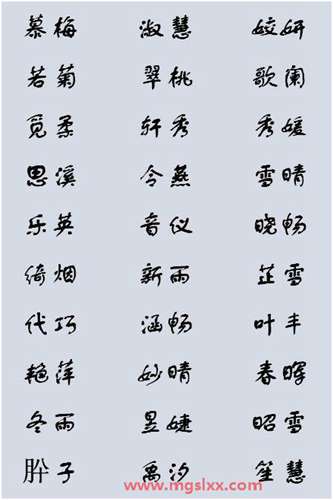 慕梅 淑慧 姣妍
若菊 翠桃 歌阑
觅柔 轩秀 秀媛
思溪 令燕 雪晴
乐英 音仪 晓畅
绮烟 新雨 芷雪
代巧 涵畅 叶丰
艳萍 妙晴 春晖
冬雨 昱婕 昭雪
肸子 禹汐 笙慧
www.mgslxx.com